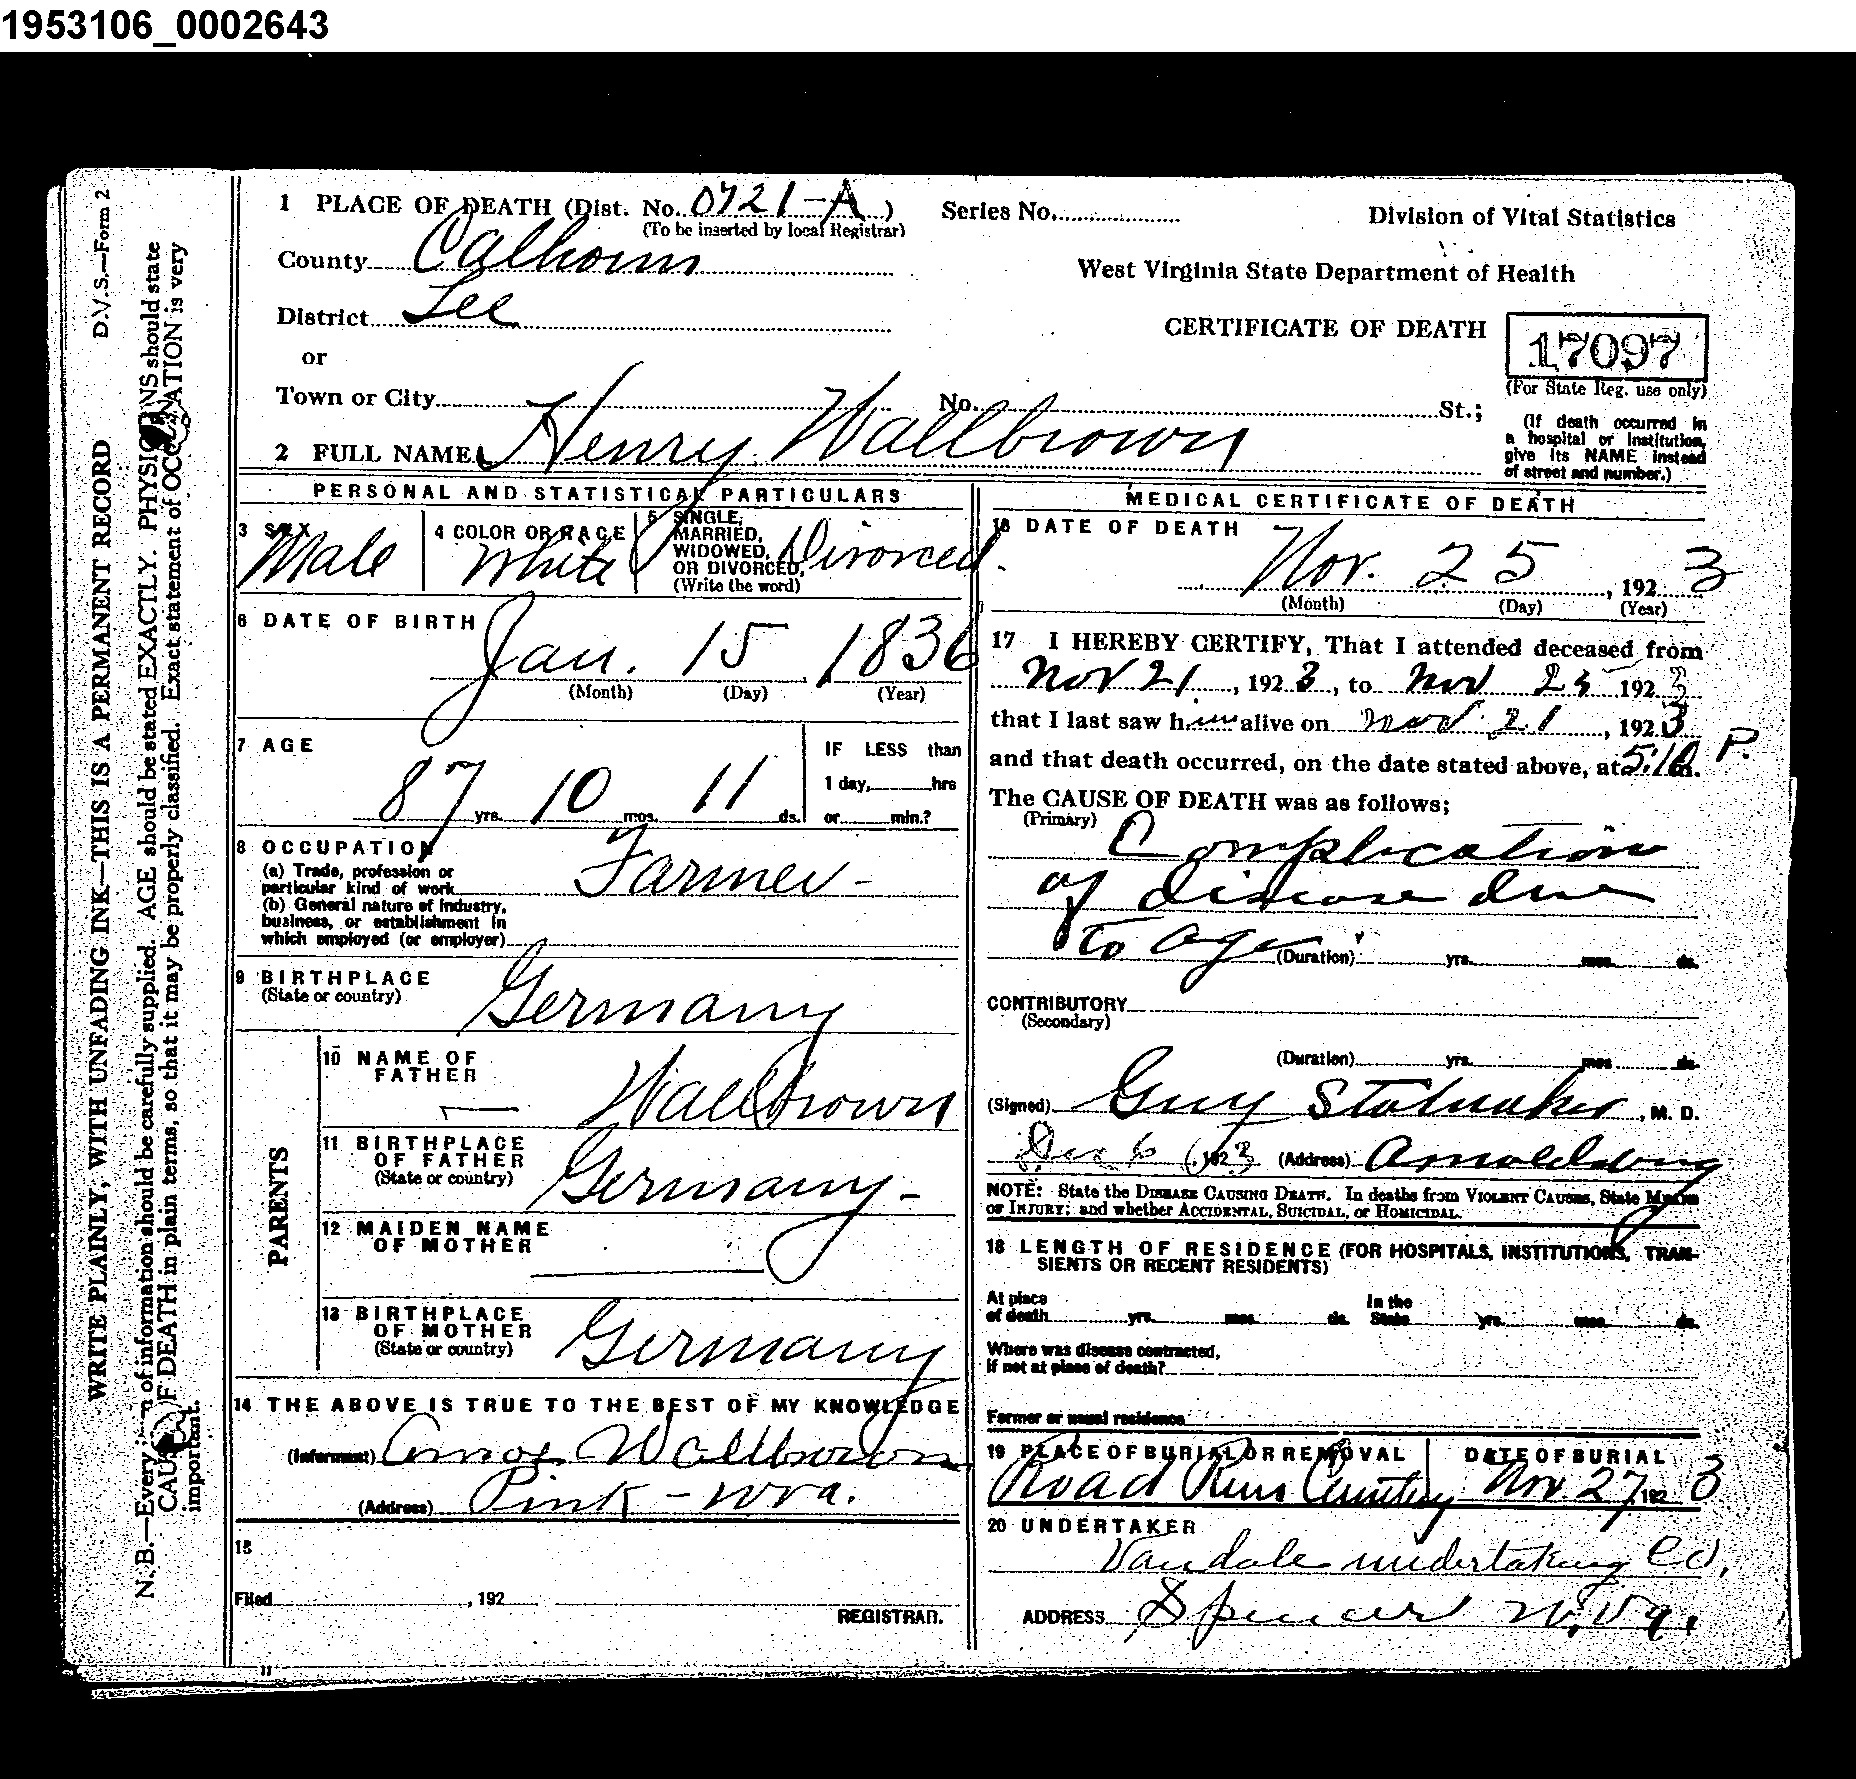 1953106_0002643
D.V.S.—Form 2
WRITE PLAINLY, WITH UNFADING INK—THIS IS A PERMANENT RECORD
N. B.—Every of information should be carefully supplied. AGE should be stated EXACTLY. PHYSICIANS should state
CAUSE OF DEATH in plain terms, so that it may be properly classified. Exact statement of OCCUPATION is very
important.
1 PLACE OF DEATH (Dist. No. 0721-A) Series No. Division of Vital Statistics
(To be inserted by local Registrar)
County Calhoun West Virginia State Department of Health
District Lee
CERTIFICATE OF DEATH 17097
or (For State Reg. use only)
Town or City No. St.;
(If death occurred in
a hospital or institution,
give its NAME instead
of street and number.)
2 FULL NAME Henry Wallbrown
PERSONAL AND STATISTICAL PARTICULARS
3 SEX Male
4 COLOR OR RACE White
5 SINGLE,
MARRIED,
WIDOWED,
OR DIVORCED,
(Write the word)
Divorced.
6 DATE OF BIRTH
Jan. 15 1836
(Month) (Day) (Year)
7 AGE
87 yrs. 10 mos. 11 ds.
IF LESS than
1 day, hrs
or min.?
8 OCCUPATION
(a) Trade, profession or
particular kind of work Farmer-
(b) General nature of industry,
business, or establishment in
which employed (or employer)
9 BIRTHPLACE
(State or country) Germany
PARENTS
10 NAME OF
FATHER
— Wallbrown
11 BIRTHPLACE
OF FATHER
(State or country) Germany-
12 MAIDEN NAME
OF MOTHER
13 BIRTHPLACE
OF MOTHER
(State or country) Germany
14 THE ABOVE IS TRUE TO THE BEST OF MY KNOWLEDGE
(Informant) Amos Wallbrown
(Address) Pink - WVa.
15
Filed , 192
REGISTRAR.
MEDICAL CERTIFICATE OF DEATH
16 DATE OF DEATH
Nov. 25, 1923
(Month) (Day) (Year)
17 I HEREBY CERTIFY, That I attended deceased from
Nov 21, 1923, to Nov 25 1923
that I last saw him alive on Nov 21, 1923
and that death occurred, on the date stated above, at 5:10 P. m.
The CAUSE OF DEATH was as follows;
(Primary) Complication
of disease due
to age
(Duration) yrs. mos. ds.
CONTRIBUTORY
(Secondary)
(Duration) yrs. mos. ds.
(Signed) Guy Stalnaker, M. D.
Dec 6, 1923 (Address) Arnoldsburg
NOTE: State the DISEASE CAUSING DEATH. In deaths from VIOLENT CAUSES, State MEANS
OF INJURY; and whether ACCIDENTAL, SUICIDAL, or HOMICIDAL.
18 LENGTH OF RESIDENCE (FOR HOSPITALS, INSTITUTIONS, TRAN-
SIENTS OR RECENT RESIDENTS)
At place
of death yrs. mos. ds.
In the
State yrs. mos. ds.
Where was disease contracted,
if not at place of death?
Former or usual residence
19 PLACE OF BURIAL OR REMOVAL
Road Run Cemetery
DATE OF BURIAL
Nov. 27, 1923
20 UNDERTAKER
Vandale undertaking Co,
ADDRESS Spencer W.Va.